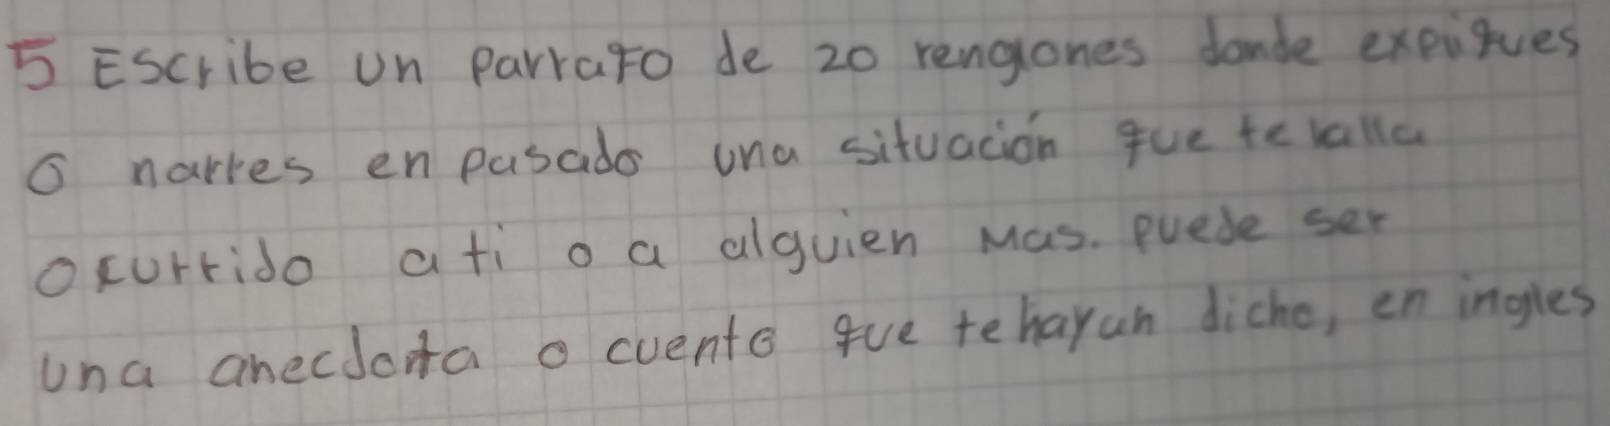 5 Escribe un parrafo de 20 renglones donde expliques
o narres en pasado una situación que te halla
ocurrido a ti o a alguien mas. puede ser
una anecdota o cuento que te hayan dicho, en ingles